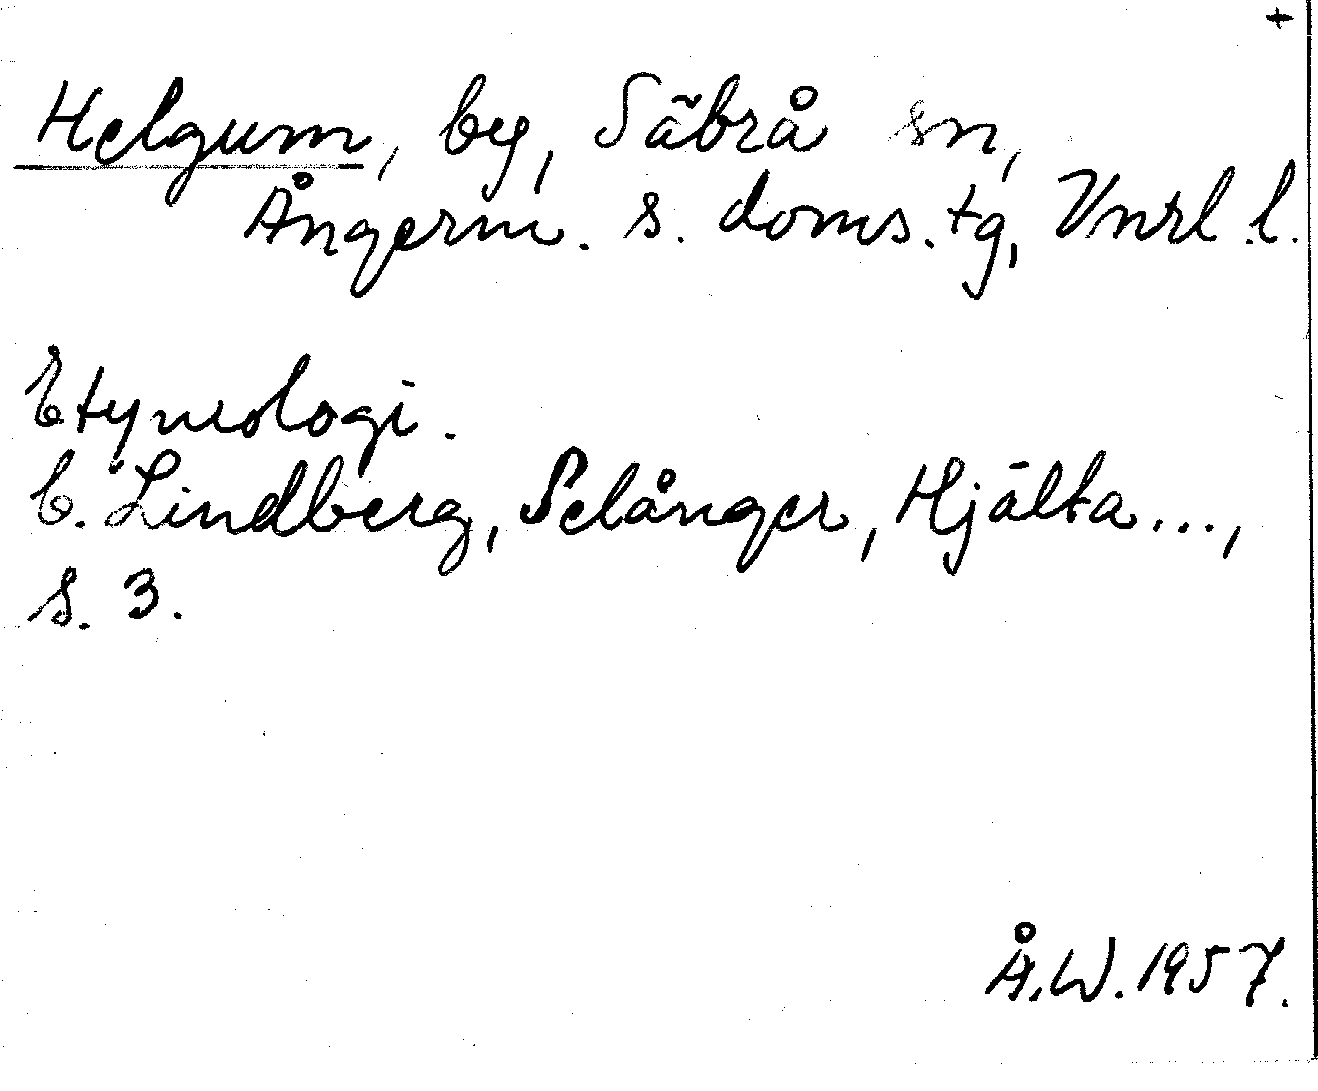 +
Helgum, by, Säbrå sn,
Ångerm. s. doms. tg, Vnrl. l.
Etymologi.
C. Lindberg, Selånger, Hjälta...,
s. 3.
Å.W. 1957.